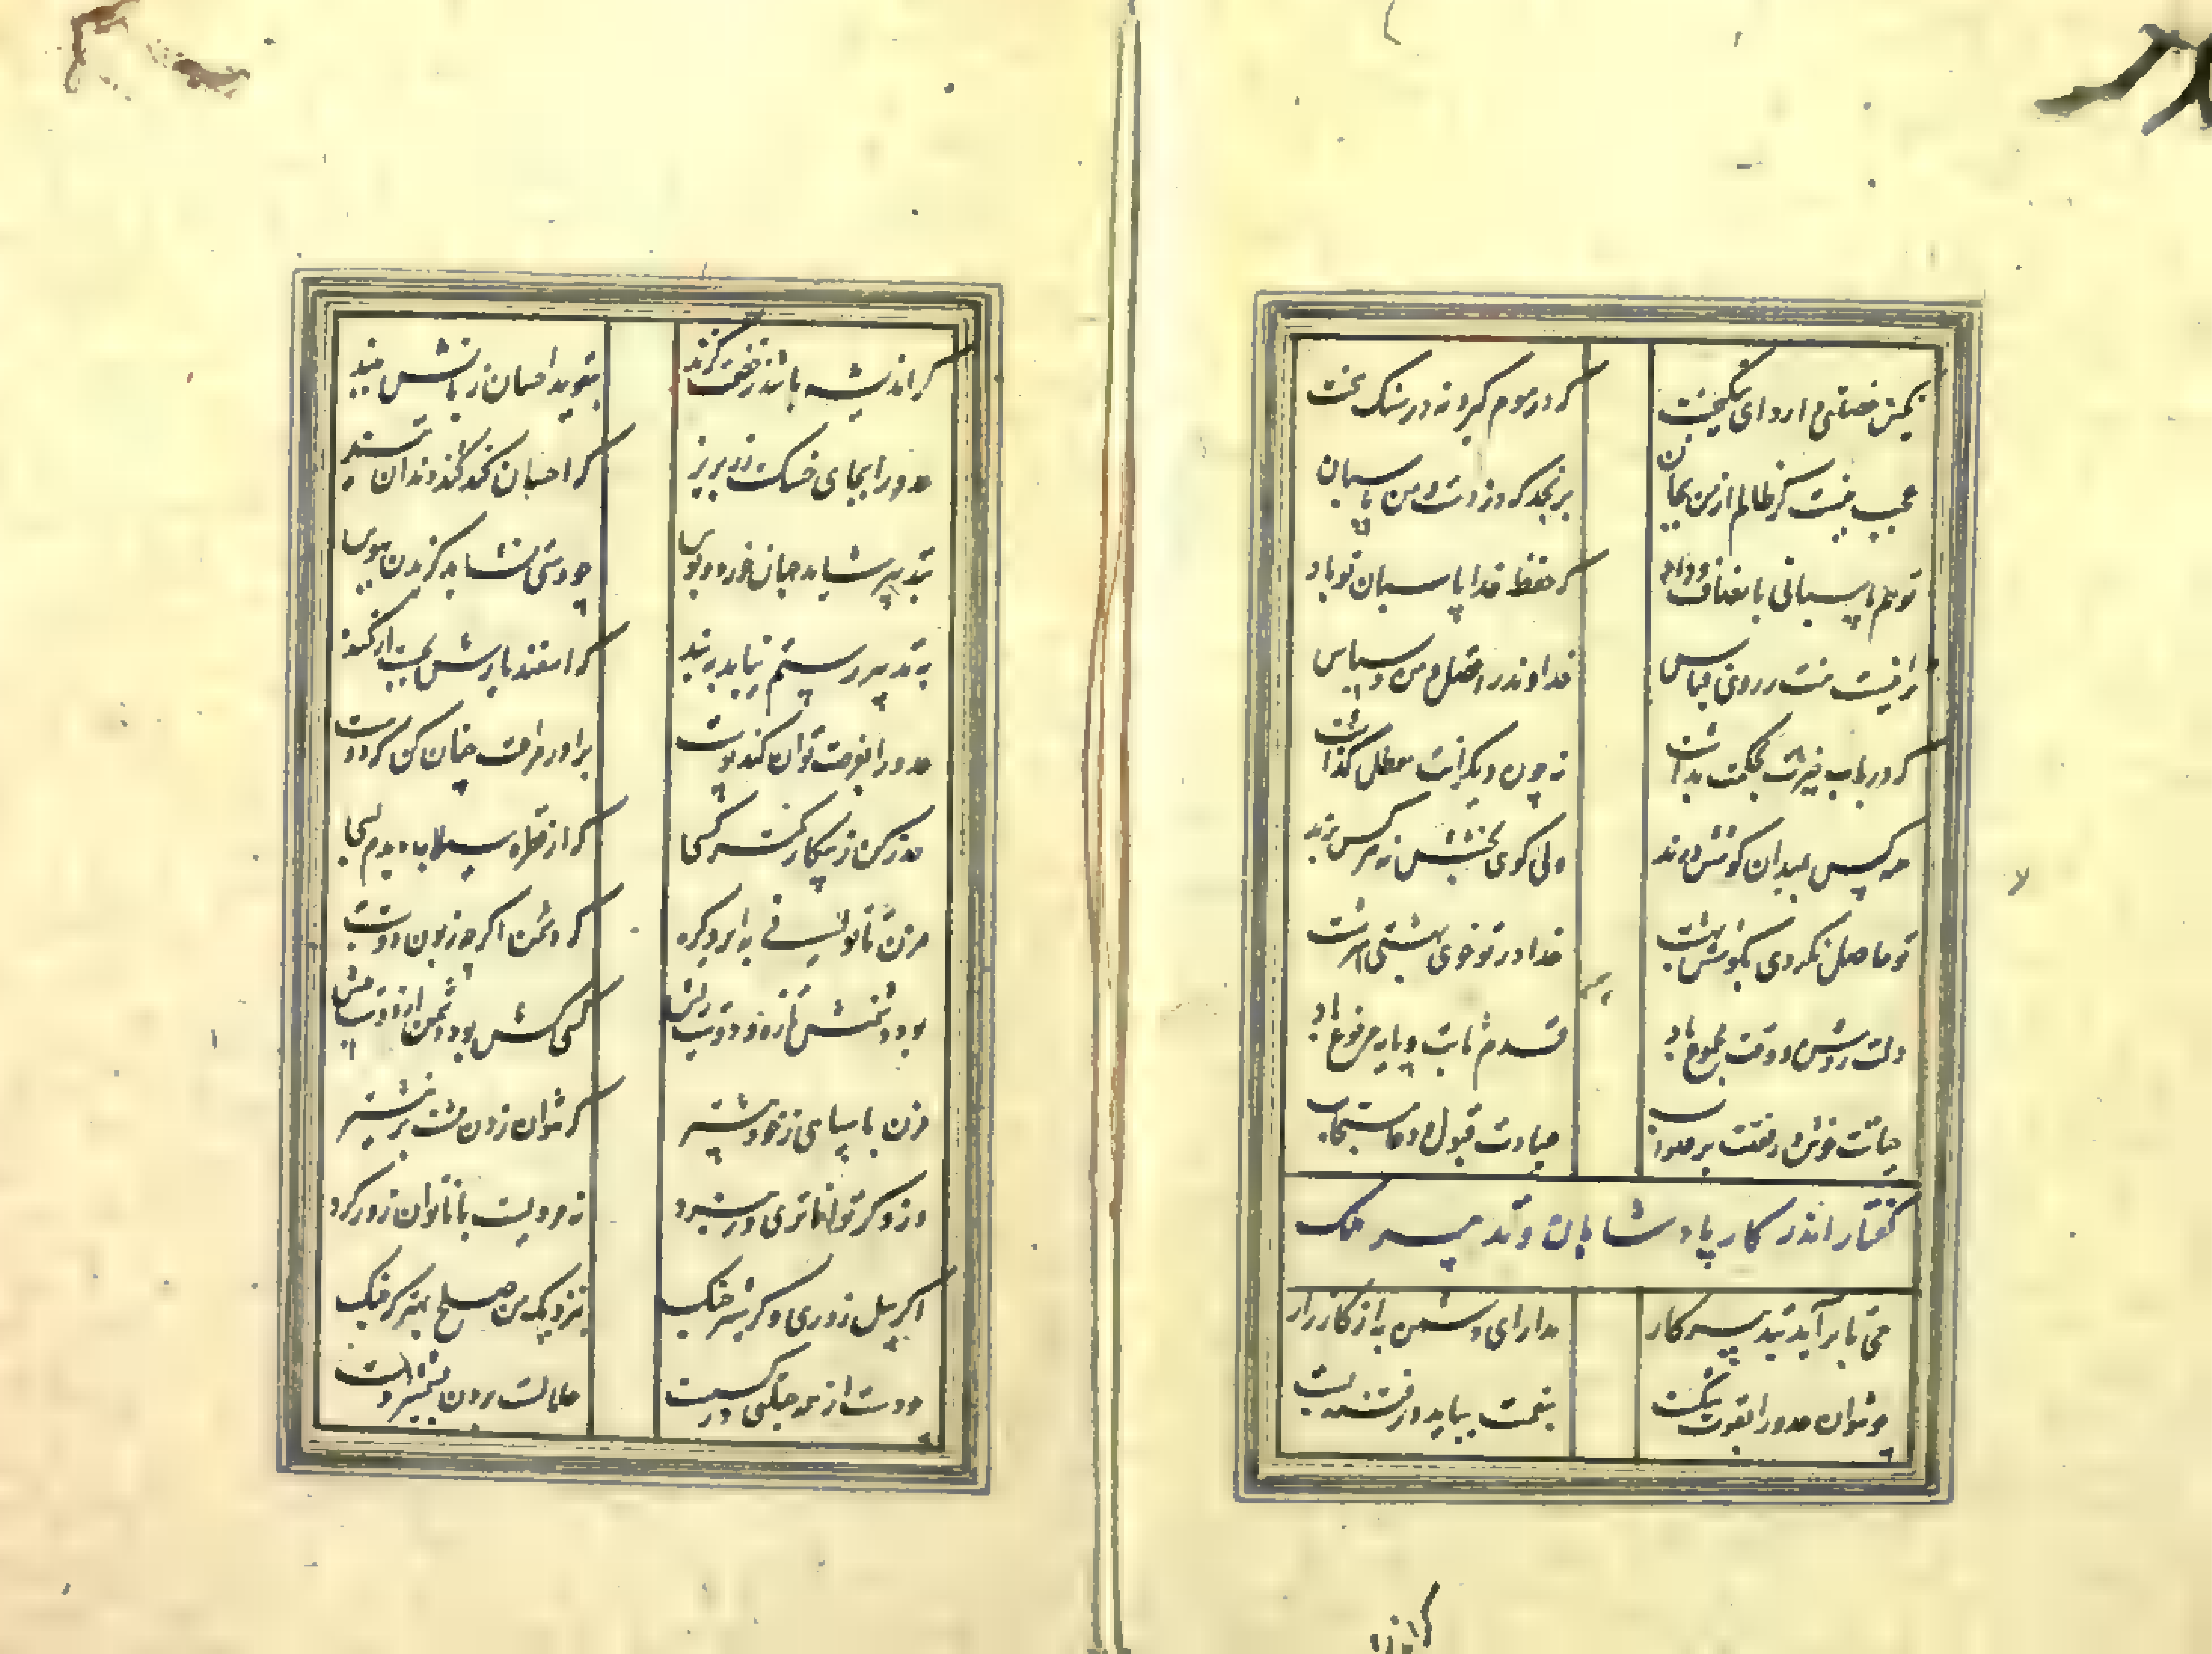 نگین خصلتی دارد ای نیکبخت
که در موم گیرد نه در سنگ سخت
عجب نیست گر ظالم از من بجان
برنجد که دزدست و من پاسبان
تو هم پاسبانی بانصاف و داد
که حفظ خدا پاسبان تو باد
ترا نیست منت ز روی قیاس
خداوند را فضل و من و سپاس
که در باب خیرت بحکمت بداشت
نه چون دیگرانت معطل گذاشت
همه کس بمیدان کوشش درند
ولی گوی بخشش نه هر کس برند
تو حاصل نکردی بکوشش بهشت
خدا در تو خوی بهشتی سرشت
دلت روشن و وقت مجموع باد
قدم ثابت و پایه مرفوع باد
حیاتت خوش و رفتنت بر صواب
عبادت قبول و دعا مستجاب
گفتار اندر کار پادشاهان و تدبیر ملک
همی تا برآید تدبیر کار
مدارای دشمن به از کارزار
چو نتوان عدو را بقوت شکست
بنعمت بباید در فتنه بست
گر اندیشه باشد ز خصمت گزند
بتعویذ احسان زبانش ببند
عدو را بجای خسک زر بریز
که احسان کند کند دندان تیز
بتدبیر شاید جهان خورد و لوس
چو دستی نشاید گزیدن ببوس
به تدبیر رستم نیاید به بند
که اسفندیارش نجست از کمند
عدو را بفرصت توان کند پوست
برادر مراعات چنان کن که دوست
حذر کن ز پیکار کمتر کسی
که از قطره سیلاب دیدم بسی
مزن تا توانی به ابرو گره
که دشمن اگر چه زبون دوست به
بود دشمنش تازه و دوست ریش
کسی کش بود دشمن از دوست بیش
مزن با سپاهی ز خود بیشتر
که نتوان زدن مشت بر نیشتر
و زو گر تواناتری در نبرد
نه مردیست با ناتوان زور کرد
اگر پیل زوری و گر شیر چنگ
بنزدیک من صلح بهتر که جنگ
چو دست از همه حیلتی در گسست
حلالست بردن بشمشیر دست
گر اندیشه